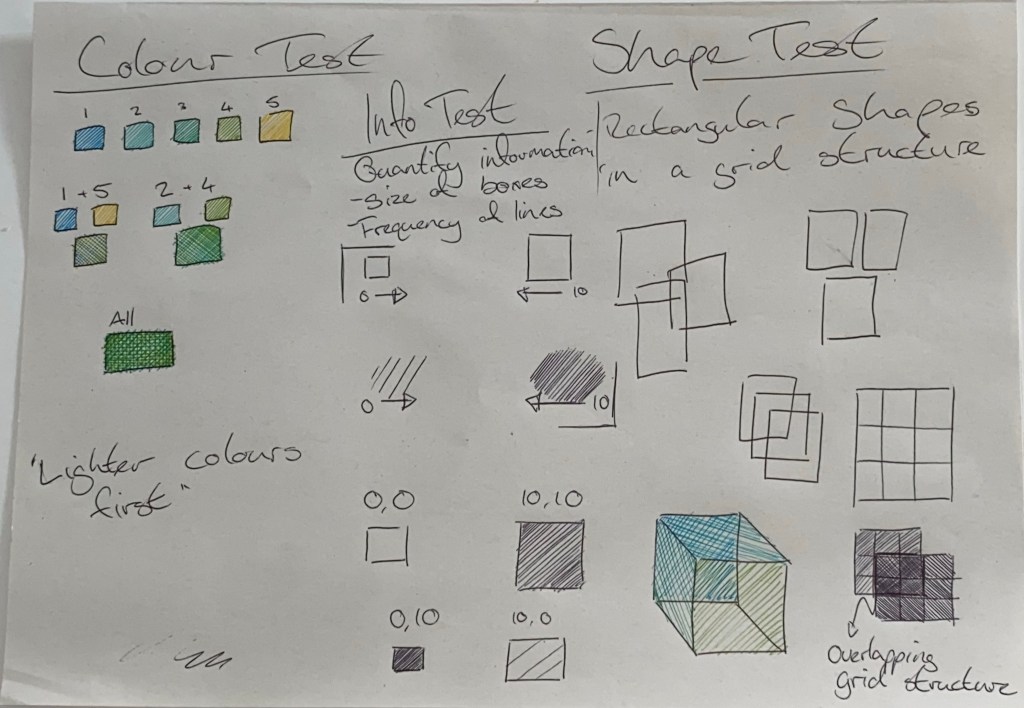 Colour Test
1 2 3 4 5
1 + 5 2 + 4
All
"Lighter colours
first"
Info Test
Quantify information
- size of boxes
- Frequency of lines
0 10
0 10
0,0 10,10
0,10 10,0
Shape Test
Rectangular shapes
in a grid structure
Overlapping
grid structure